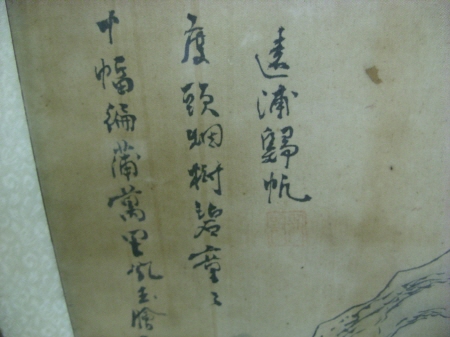 遠浦歸帆
度頭烟樹碧童々
十幅編蒲萬里風玉膾